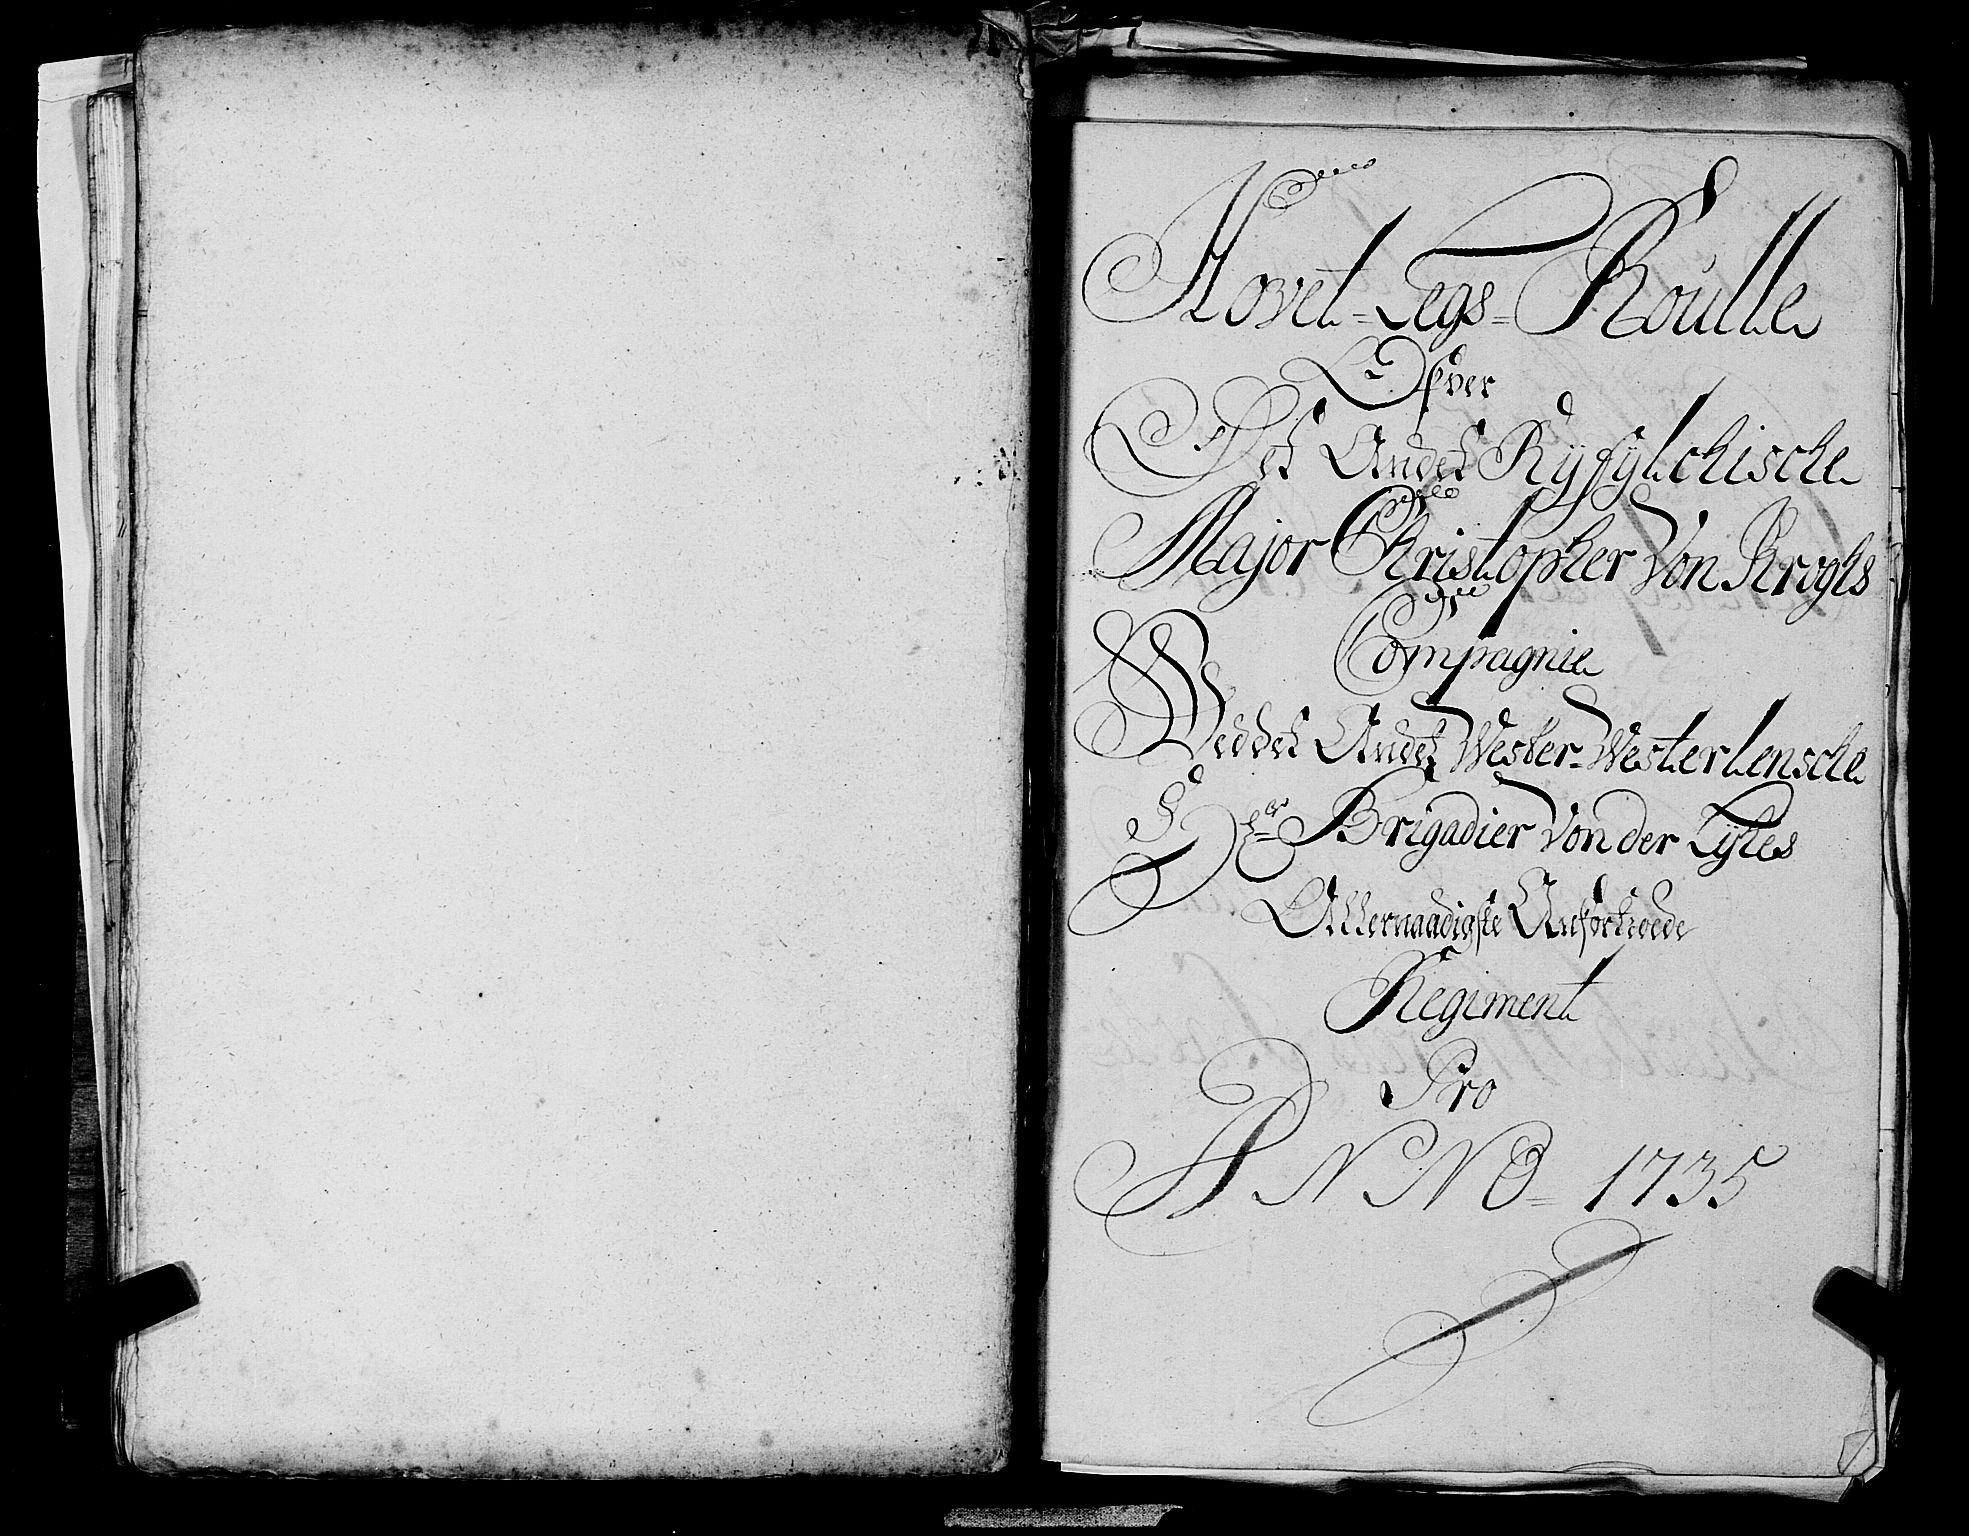 Hovet-Legs-Roulle
Ofver
Det Andet Ryfylckische
Major Christopher Von Kroghs
Compagnie
Ved det Andet Wester-Westerlensche
Hr. Brigadier Von der Lyhes
Allernaadigste Anfortroede
Regiment
Pro
ANNO 1735